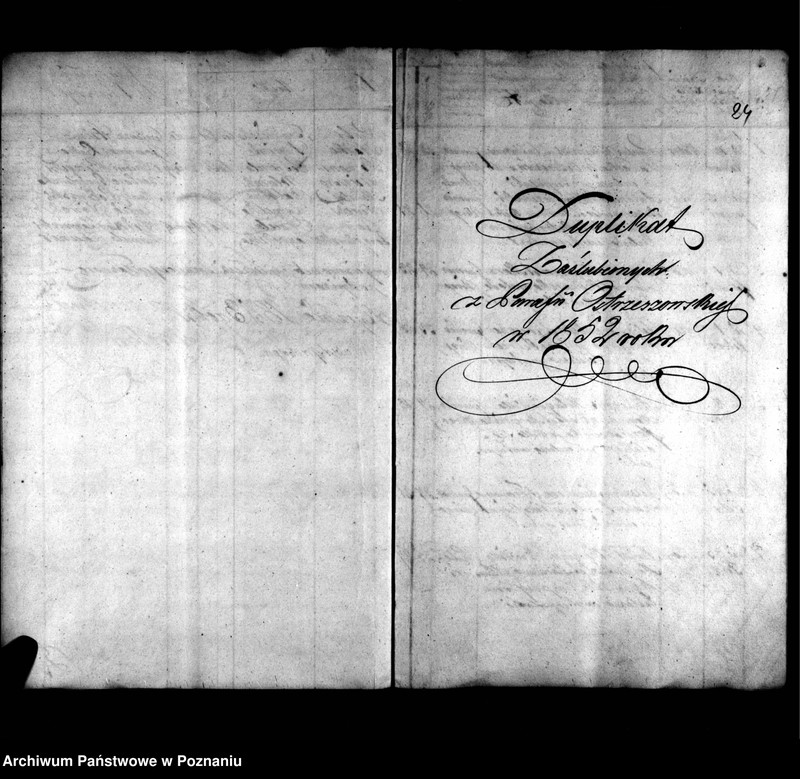 24
Duplikat
Zaślubionych
z Parafii Ostrzeszowskiéj
w 1852 roku
Archiwum Państwowe w Poznaniu